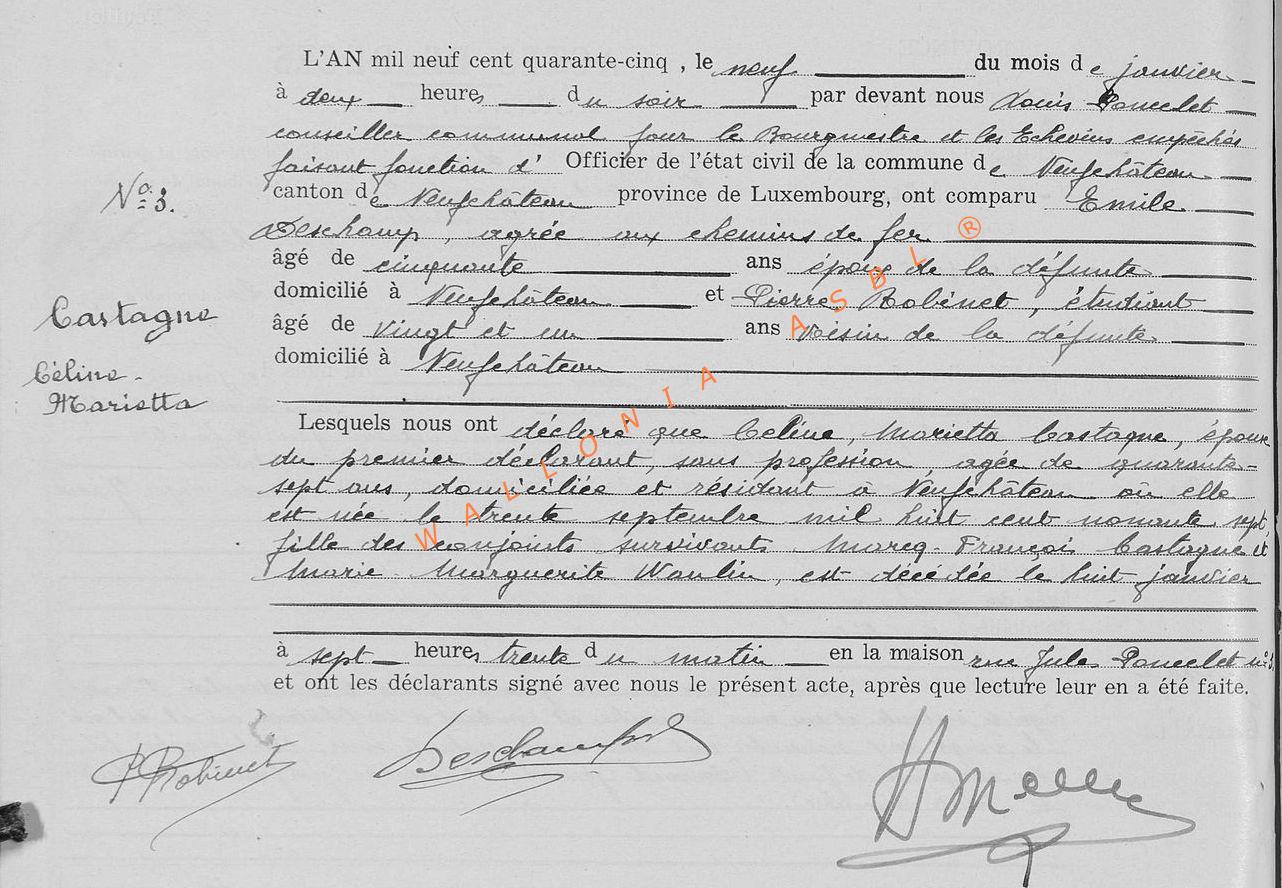 L'AN mil neuf cent quarante-cinq , le neuf du mois de janvier
à deux heures du soir par devant nous Louis Poncelet
conseiller communal pour le Bourgmestre et les Echevins empêchés
faisant fonction d' Officier de l'état civil de la commune de Neufchâteau
canton de Neufchâteau province de Luxembourg, ont comparu Emile
Deschamp, agrée aux chemins de fer
âgé de cinquante ans époux de la défunte
domicilié à Neufchâteau et Pierre Robinet, étudiant
âgé de vingt et un ans voisin de la défunte
domicilié à Neufchâteau
No. 3.
Castagne
Céline-
Marietta
Lesquels nous ont déclaré que Céline, Marietta Castagne, épouse
du premier déclarant, sans profession, agée de quarante-
sept ans, domiciliée et résidant à Neufchâteau où elle
est née le trente septembre mil huit cent nonante sept,
fille des conjoints survivants Marcq-François Castagne et
Marie-Marguerite Waulin, est décédée le huit janvier
à sept heures trente du matin en la maison rue Jules Poncelet n°
et ont les déclarants signé avec nous le présent acte, après que lecture leur en a été faite.
P Robinet Deschamps
WALLONIA ASBL ®